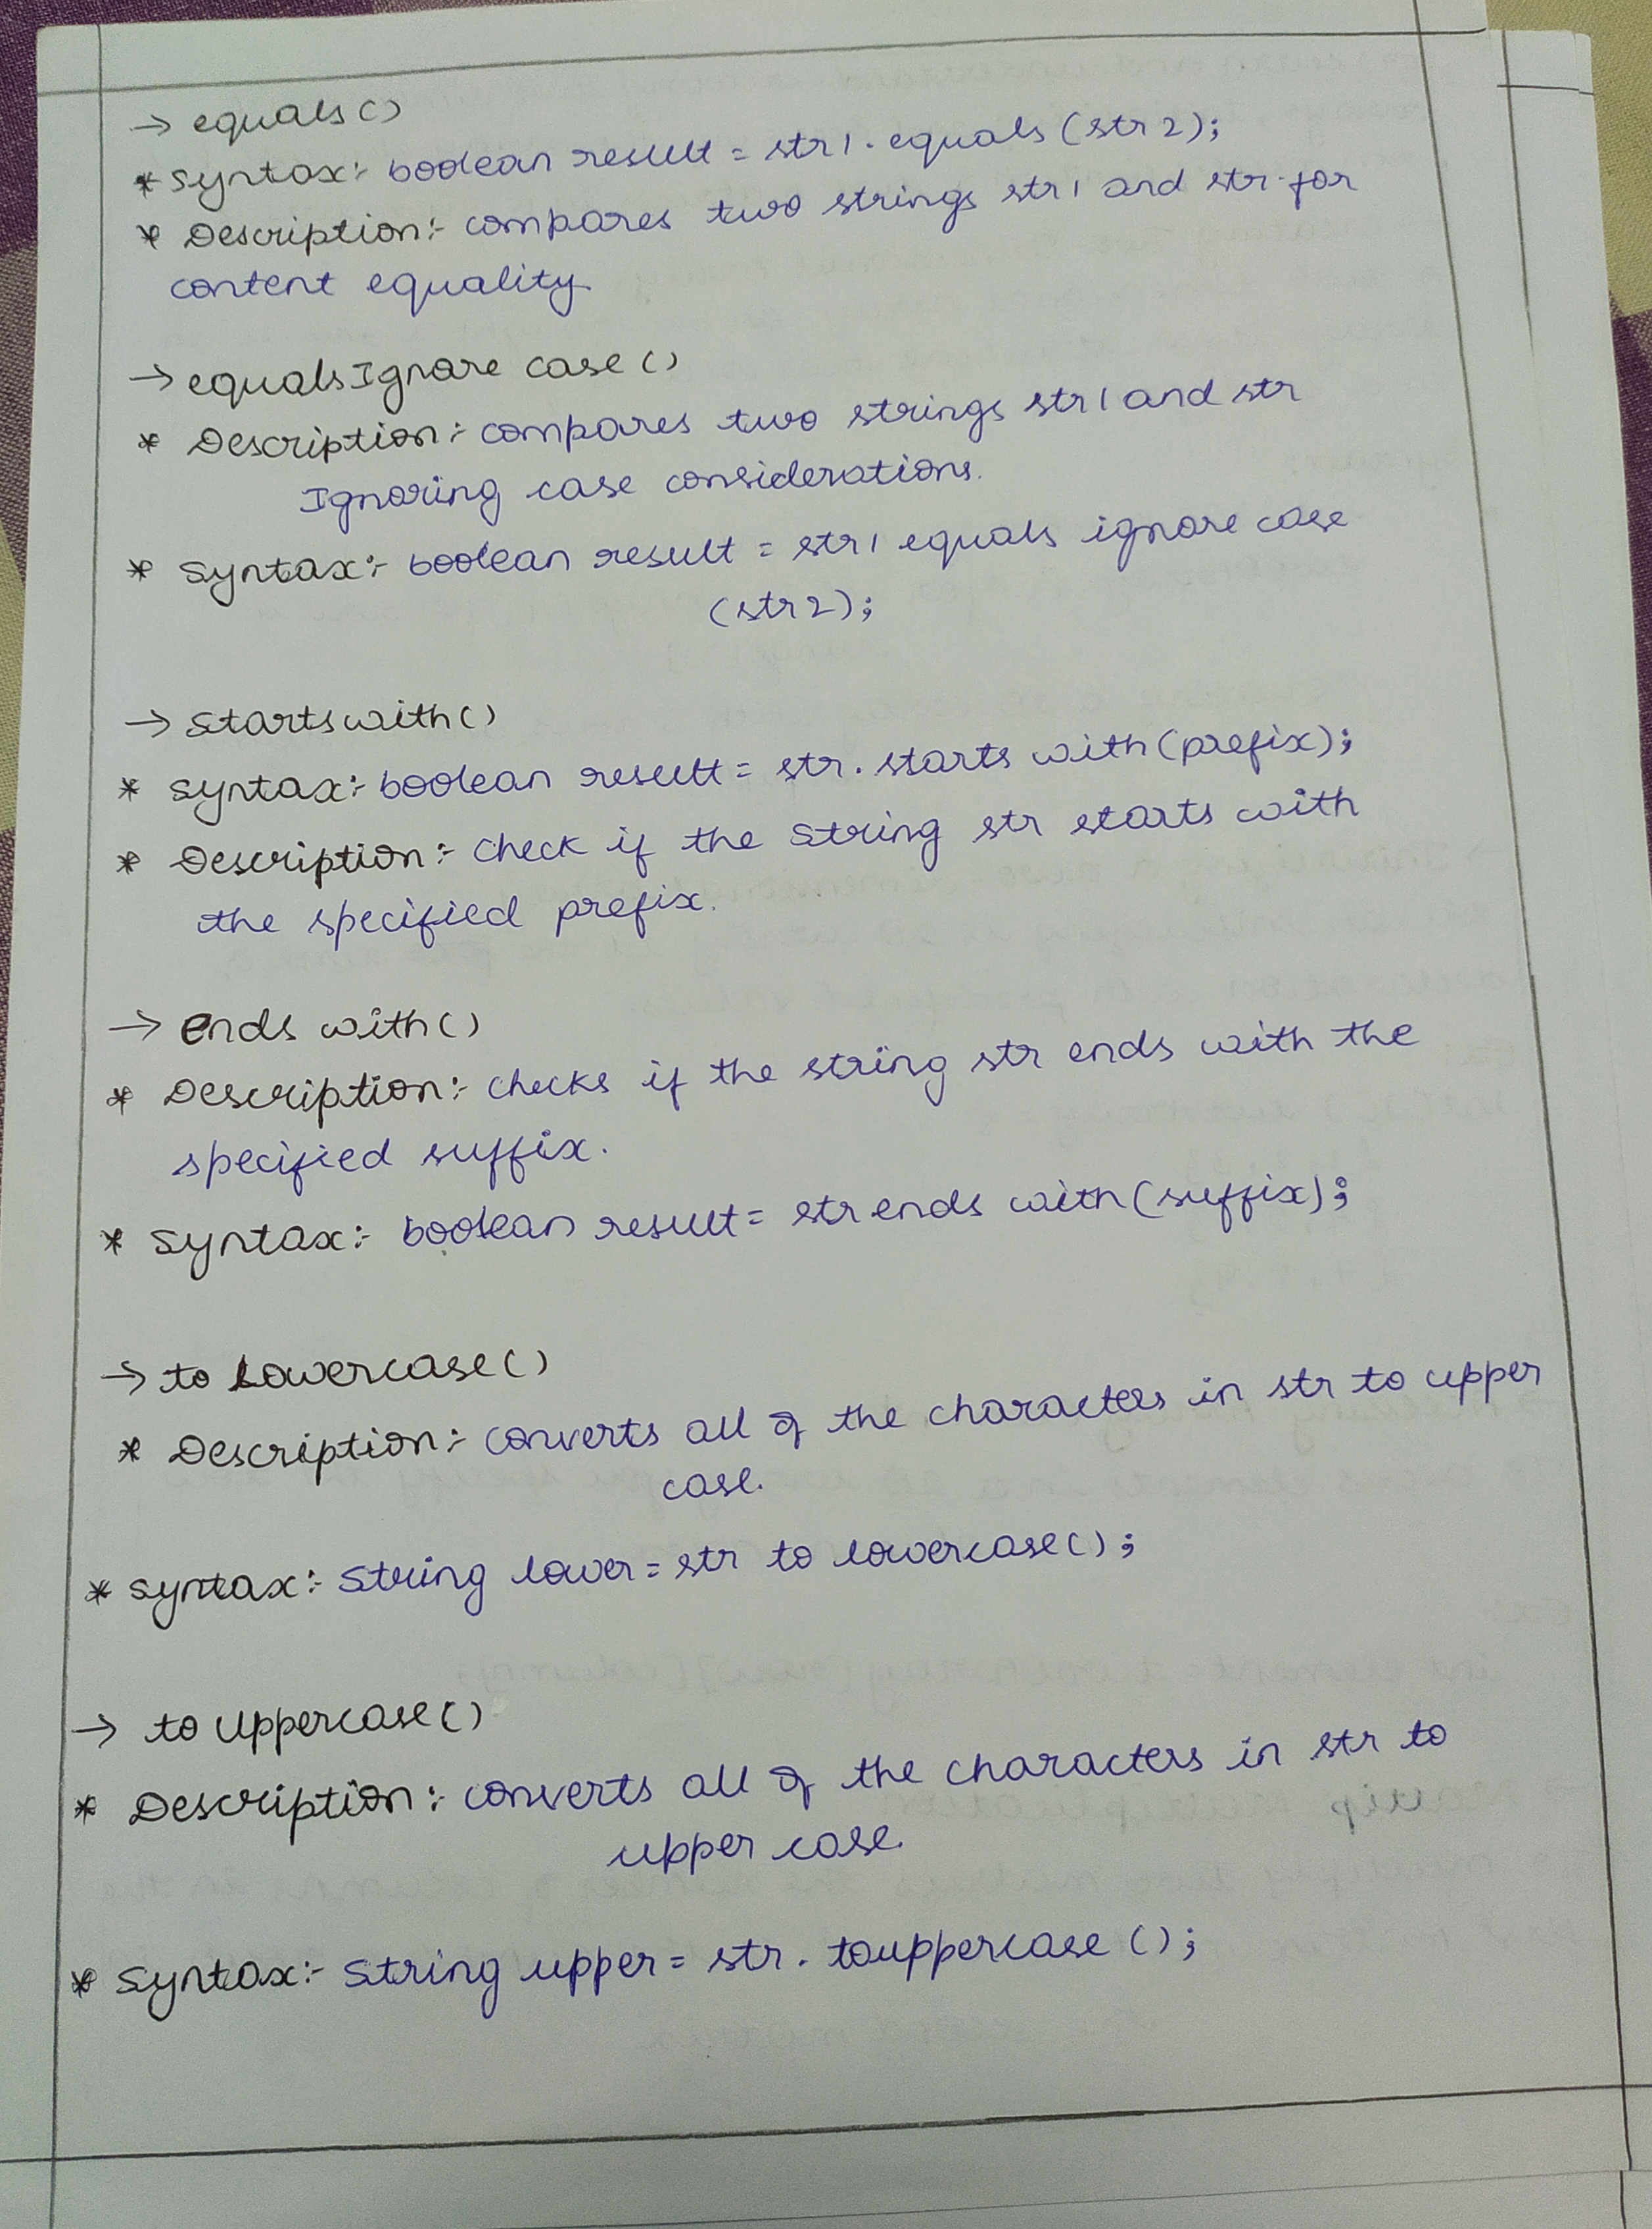 → equals()
* Syntax:- boolean result = str1.equals(str2);
* Description:- compares two strings str1 and str for
content equality
→ equalsIgnore case()
* Description:- compares two strings str1 and str
Ignoring case considerations.
* Syntax:- boolean result = str1 equals ignore case
(str2);
→ Startswith()
* Syntax:- boolean result = str. starts with(prefix);
* Description:- Check if the String str starts with
the specified prefix.
→ Ends with()
* Description:- Checks if the string str ends with the
specified suffix.
* Syntax:- boolean result = str ends with(suffix);
→ to Lowercase()
* Description:- Converts all of the characters in str to upper
case.
* Syntax:- String lower = str to lowercase();
→ to Uppercase()
* Description:- Converts all of the characters in str to
upper case.
* Syntax:- String upper = str. touppercase ();